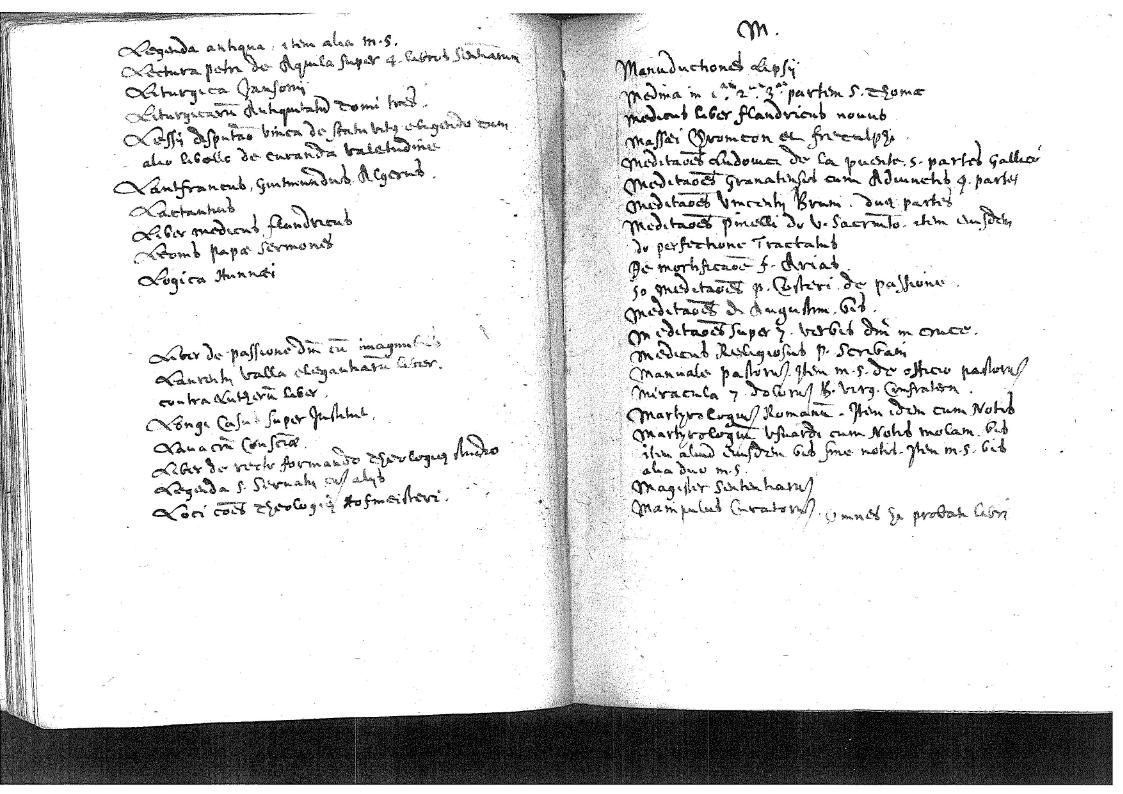 Legenda antiqua. item alia m.s.
Lectura petri de Aquila super 4. libros Sentiarum
Liturgica Jansonii
Liturgicarū Antiquitatū tomi tres.
Lessii disputāo unica de statu vitę eligendo cum
alio libello de curanda valetudine
Lantfrancus, Guitmundus, Algerus.
Lactantius
Liber medicus flandricus
Leonis papæ Sermones
Logica Hunnæi
Liber de passione dnī cū imaginibus
Laurentii valla elegantiarū liber.
contra Lutherū liber.
Longi Casus super Institut.
Lavacrū Consciæ.
Liber de recte formando theologię studio
Legenda S. Servatii cū aliis
Loci cōes theologię Hofmeisteri.
M.
Manuductiones Lipsii
Medina in 1ᵃᵐ 2ᵃᵉ 3ᵃᵐ partem S. Thomę
Medicus liber flandricus novus
Massæi Cronicon et freculphi
Meditāoēs Ludovici de la puente. 5. partes Gallicè
Meditāoēs Granatensis cum Adiunctis 4. partes
Meditāoēs Vincentii Bruni. duę partes
Meditāoēs pinelli de v. Sacrmto. item eiusdem
de perfectione Tractatus
De mortificāoe f. Arias
50 meditāoēs p. Costeri de passione.
Meditāoēs di Augustini. bis.
Meditāoēs super 7. verbis dnī in cruce.
Medicus Religiosus p. Scribani
Manuale pastorū. Item m.s. de officio pastorū
Miracula 7. dolorū B. virg. Confratern.
Martyrologiū Romanū. Item idem cum Notis
Martyrologiū Usuardi cum Notis molan. bis
item aliud eiusdem bis sine notis. Item m.s. bis
alia duo m.s.
Magister Sententiarū
Manipulus Curatorū. omnes hi probati libri